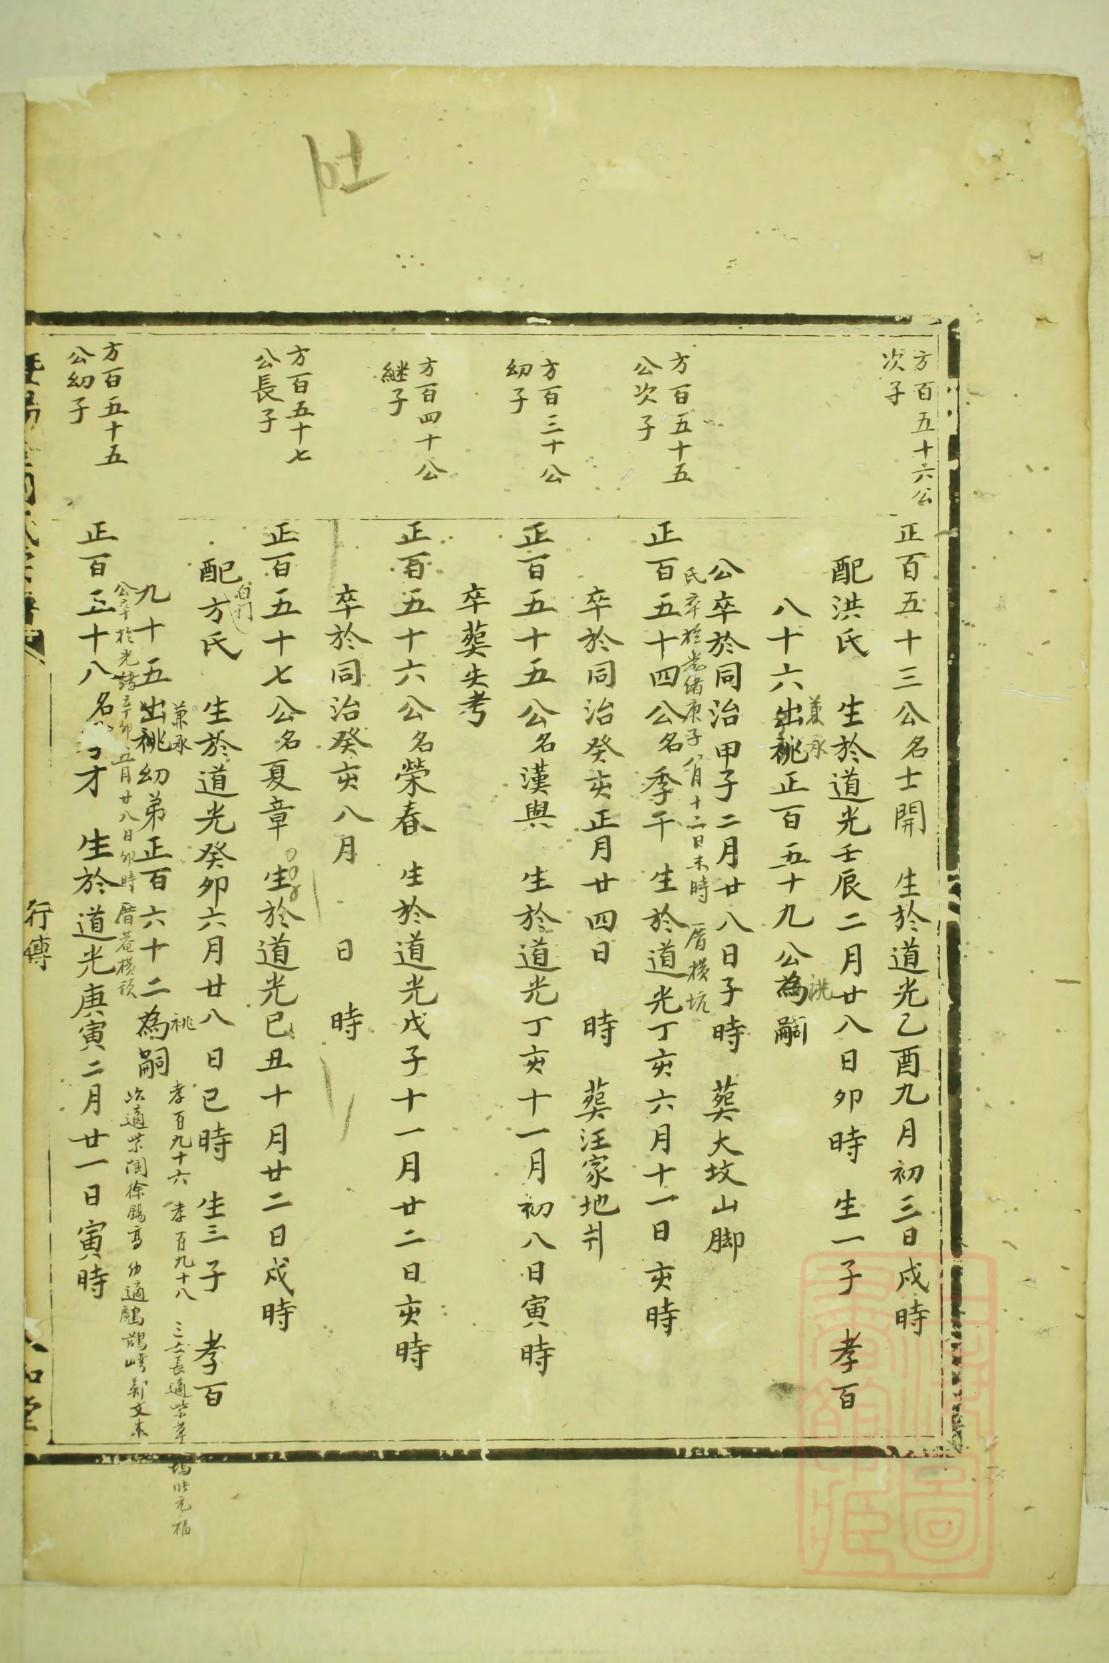 方百五十六公
次子
正百五十三公名士開　生於道光乙酉九月初三日戍時
配洪氏　生於道光壬辰二月廿八日卯時　生一子　孝百
兼承
八十六出祧正百五十九公為嗣
公卒於同治甲子二月廿八日子時　葬大坟山脚
氏卒於光緒庚子八月十二日未時　厝横坑
方百五十五
公次子
正百五十四公名季干　生於道光丁亥六月十一日亥時
卒於同治癸亥正月廿四日　時　葬汪家地
方百三十公
幼子
正百五十五公名漢興　生於道光丁亥十一月初八日寅時
卒葬失考
方百四十公
継子
正百五十六公名榮春　生於道光戊子十一月廿二日亥時
卒於同治癸亥八月　日　時
方百五十七
公長子
正百五十七公名夏章　生於道光已丑十月廿二日戍時
配方氏　生於道光癸卯六月廿八日已時　生三子　孝百
兼承
祧
孝百九十六　孝百九十八　三女長適
九十五出祧幼弟正百六十二為嗣
公卒於光緒辛卯五月廿八日卯時　厝
次適　徐錫高　幼適　文木
方百五十五
公幼子
正百五十八名　才　生於道光庚寅二月廿一日寅時
行傳